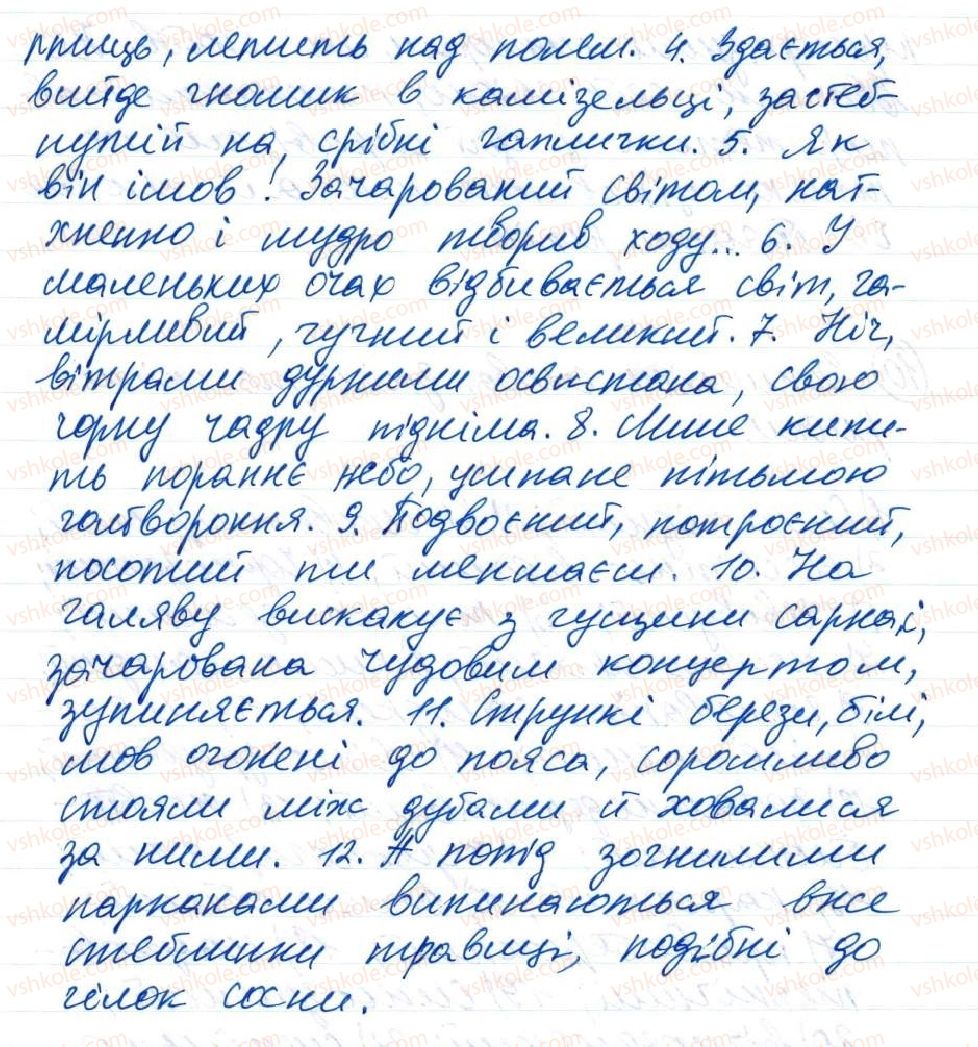 птиць, летить над полем. 4. Здається,
вийде гномик в камізельці, застеб-
нутій на, срібні гаплички. 5. Як
він ішов! Зачарований світом, нат-
хненно і мудро творив ходу... 6. У
маленьких очах відбивається світ, га-
мірливий, гучний і великий. 7. Ніч,
вітрами дурними освистана, свою
чорну чадру підніма. 8. Лише кипи-
ть пораннє небо, усипане пітьмою
гайвороння. 9. Подвоєний, потроєний,
посотий ти мекшаєш. 10. На
галяву вискакує з гущини сарна і,
зачарована чудовим концертом,
зупиняється. 11. Стрункі берези, білі,
мов оголені до пояса, соромливо
стояли між дубами й ховалися
за ними. 12. А попід зогнилими
парканами випинаються вже
стеблинки травиці, подібні до
гілок сосни.
vshkole.com